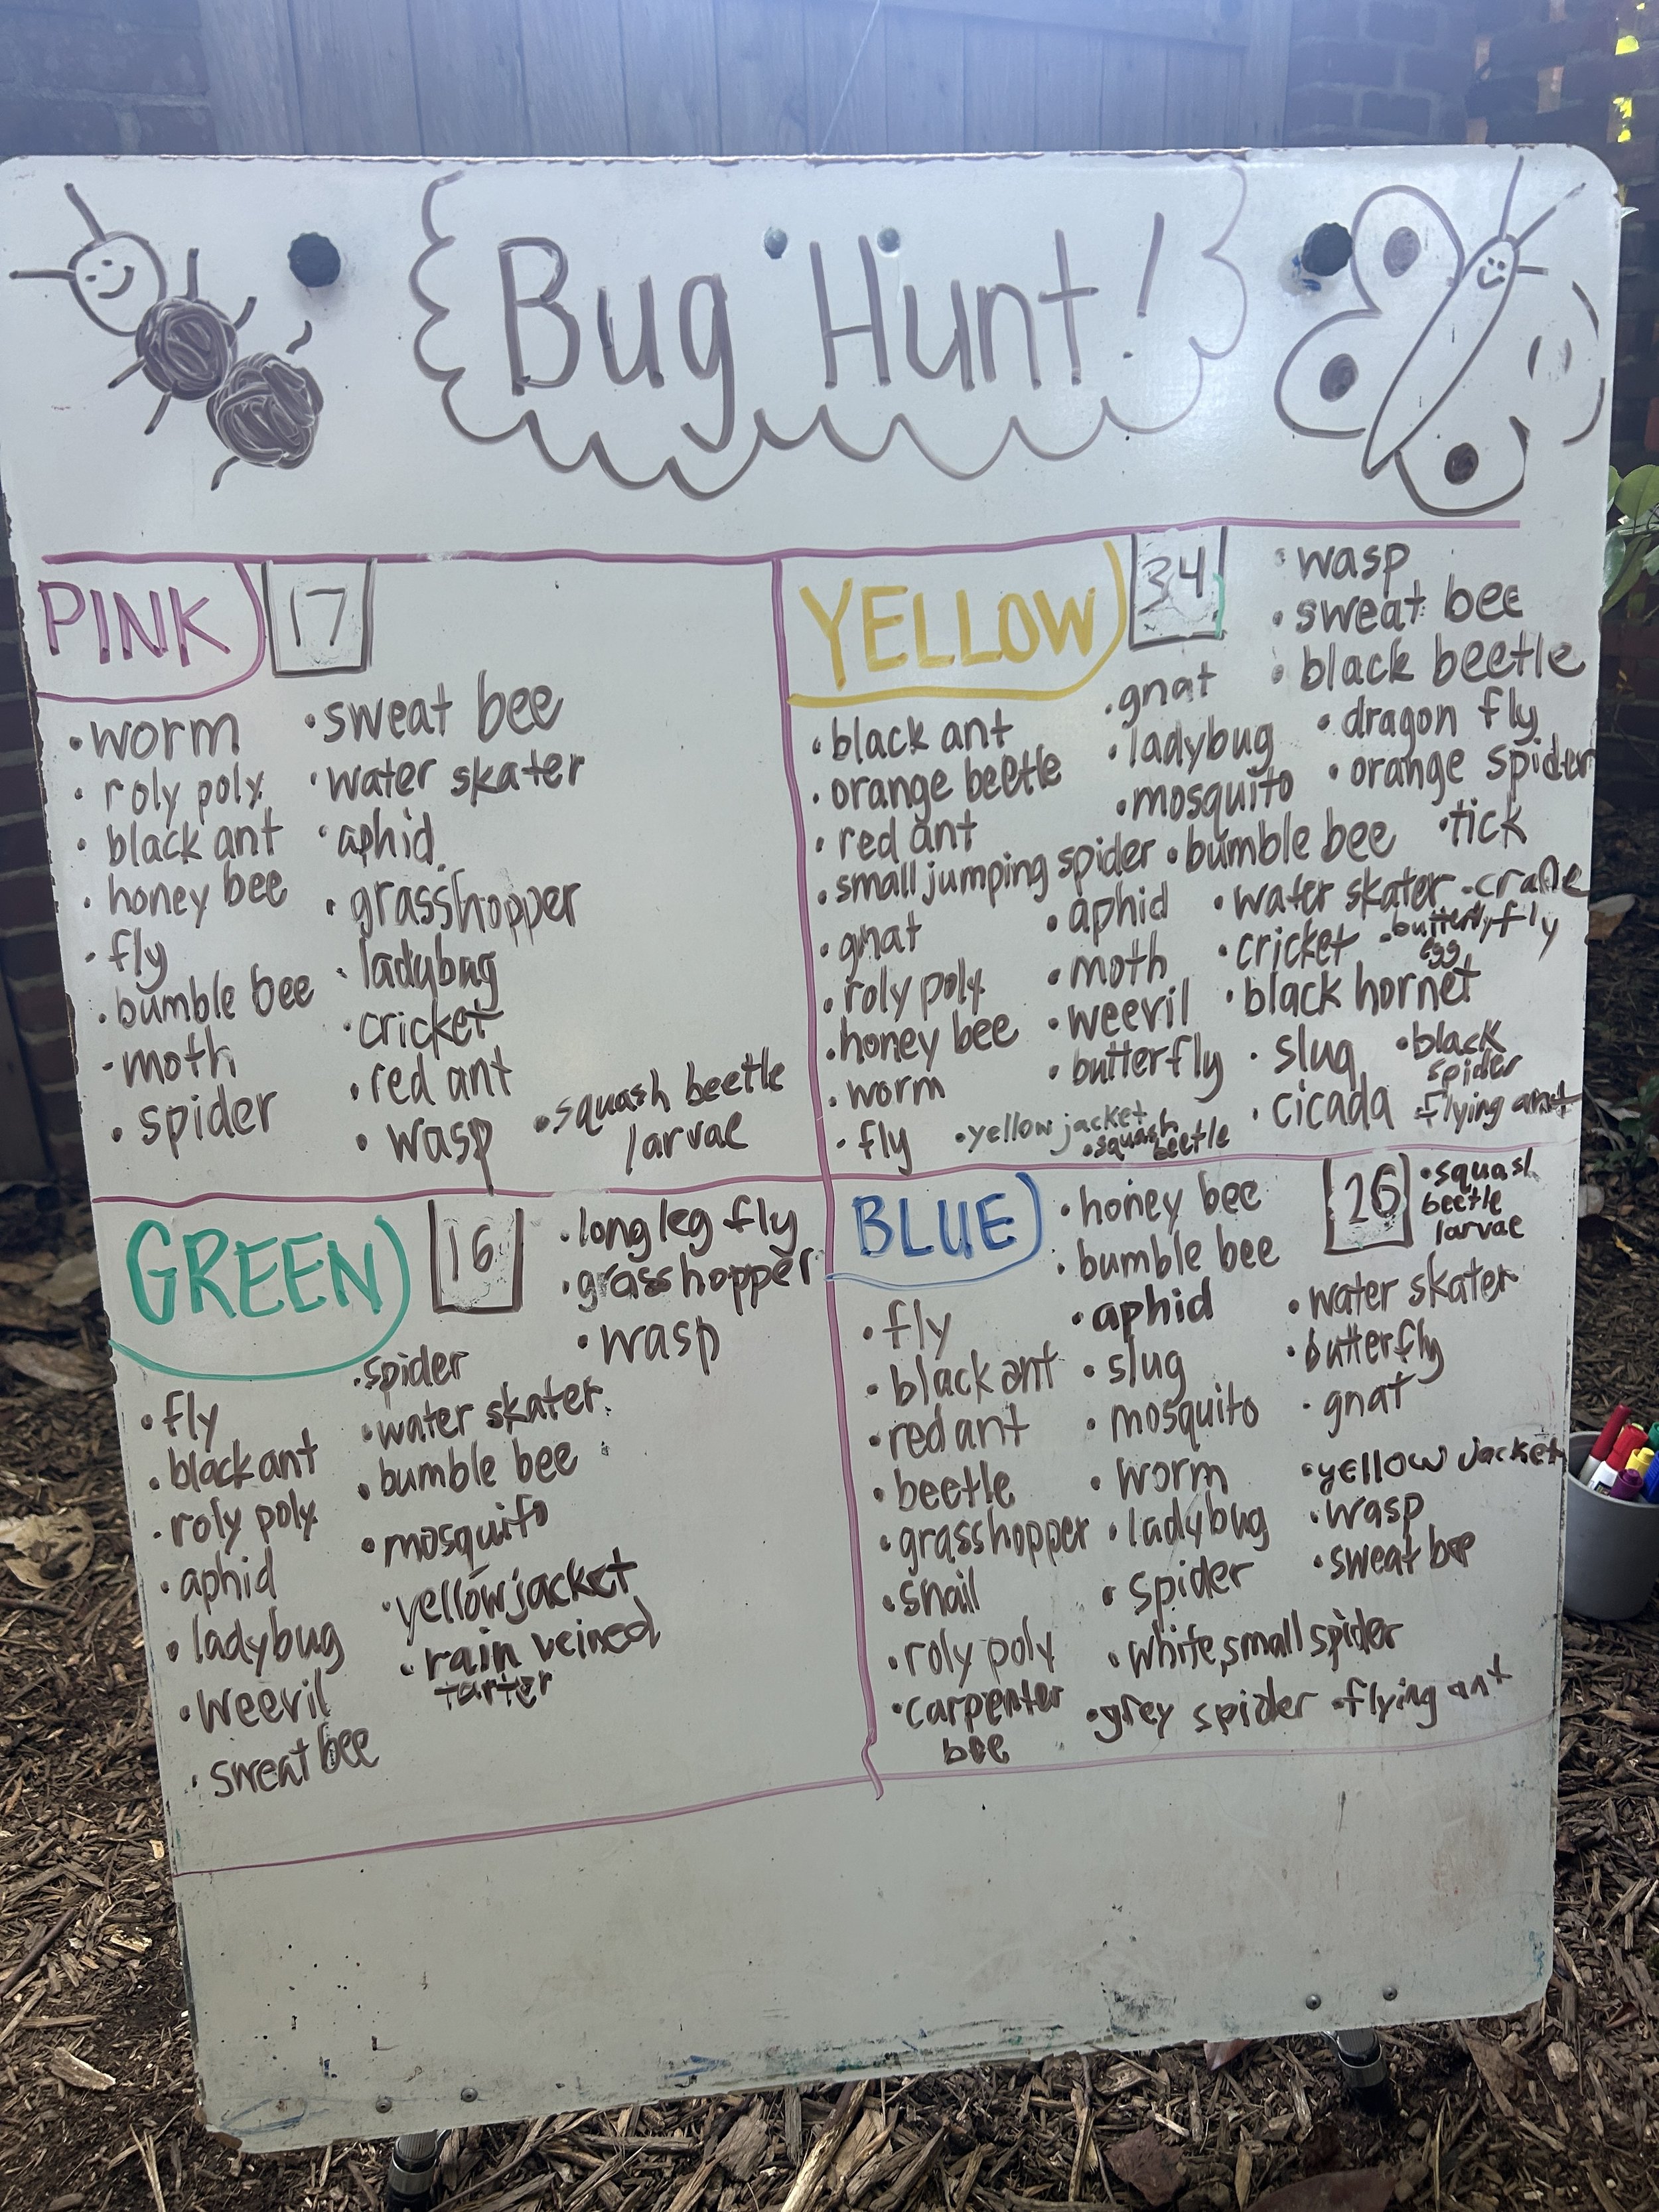 Bug Hunt!
PINK 17
• worm
• roly poly
• black ant
• honey bee
• fly
• bumble bee
• moth
• spider
• sweat bee
• water skater
• aphid
• grasshopper
• ladybug
• cricket
• red ant
• wasp
• squash beetle
larvae
YELLOW 34
• black ant
• orange beetle
• red ant
• small jumping spider
• gnat
• roly poly
• honey bee
• worm
• fly
• gnat
• ladybug
• mosquito
• bumble bee
• aphid
• moth
• weevil
• butterfly
• yellow jacket
• squash
beetle
• wasp
• sweat bee
• black beetle
• dragon fly
• orange spider
• tick
• water skater
• crane
fly
• cricket
• butterfly
egg
• black hornet
• slug
• cicada
• black
spider
• flying ant
GREEN 16
• fly
• black ant
• roly poly
• aphid
• ladybug
• weevil
• sweat bee
• spider
• water skater
• bumble bee
• mosquito
• yellow jacket
• rain veined
tarter
• long leg fly
• grasshopper
• wasp
BLUE 26
• fly
• black ant
• red ant
• beetle
• grasshopper
• snail
• roly poly
• carpenter
bee
• honey bee
• bumble bee
• aphid
• slug
• mosquito
• worm
• ladybug
• spider
• white, small spider
• grey spider
• flying ant
• squash
beetle
larvae
• water skater
• butterfly
• gnat
• yellow jacket
• wasp
• sweat bee